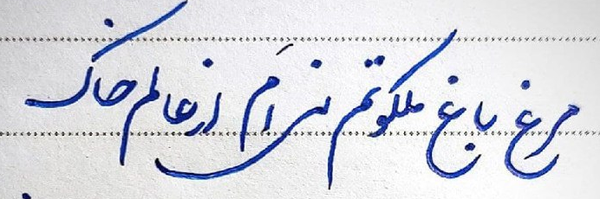 مرغ باغ ملکوتم نیَم از عالم خاک